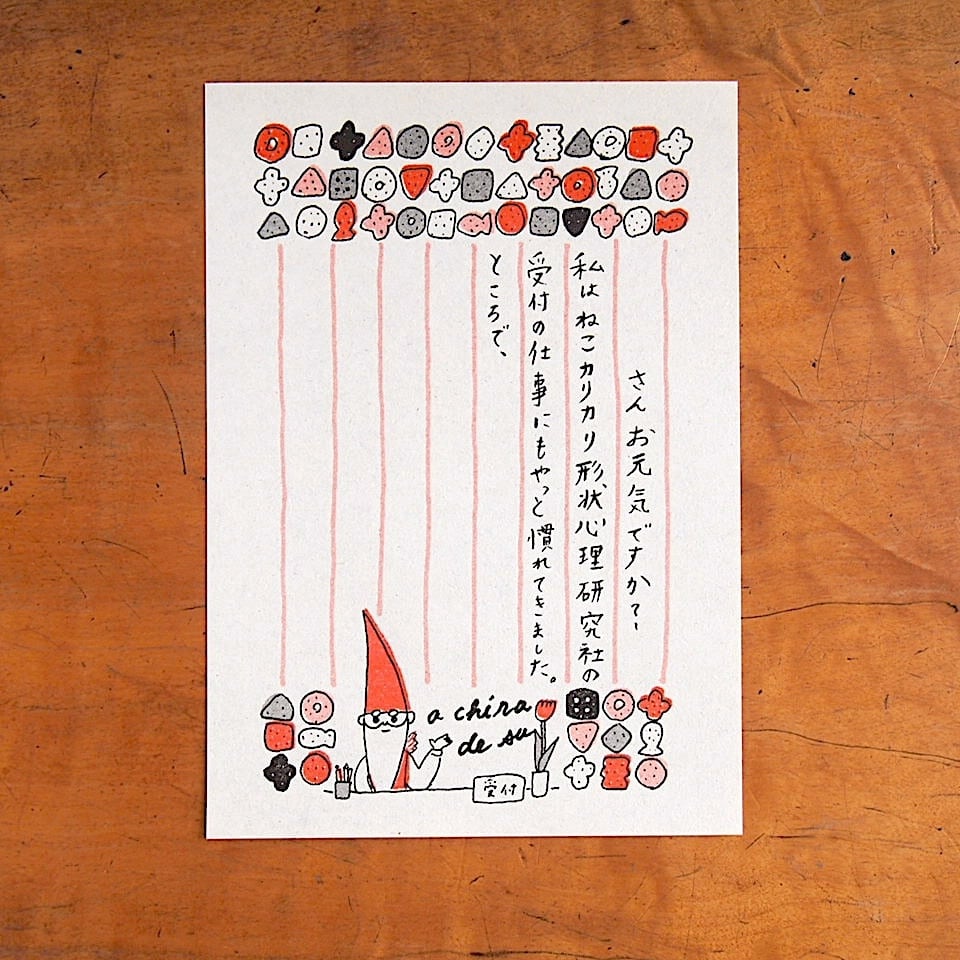 さんお元気ですか？
私はねこカリカリ形状心理研究社の
受付の仕事にもやっと慣れてきました。
ところで、
a chira
de su
受付